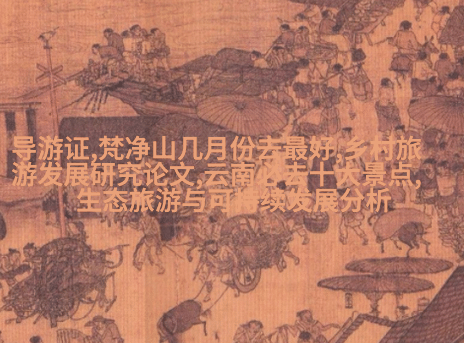 导游证,梵净山几月份去最好,乡村旅
游发展研究论文,云南必去十大景点,
生态旅游与可持续发展分析